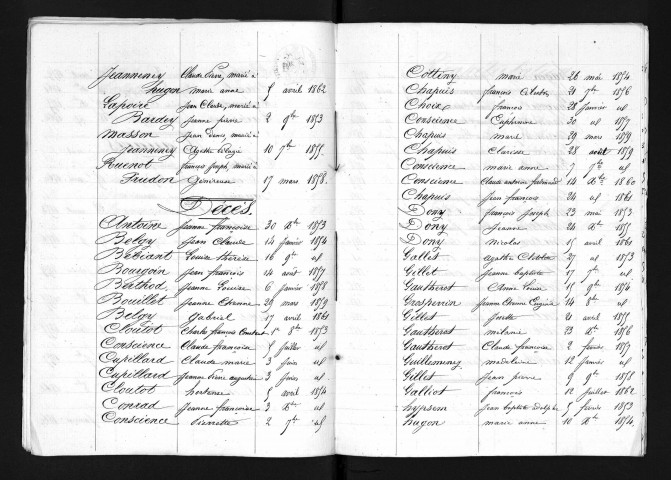 Jeanneney Claude Pierre, marié à
hugon marie anne 5 avril 1862
Lapoire Jean Claude, marié à
Bardey Jeanne pierre 2 9bre 1853
Masson Jean denis, marié à
Jeanneney Agathe 10 7bre 1855
Ruenot françois Joseph, marié à
Prudon Généreuse 17 mars 1858
Décès
Antoine Jeanne françoise 30 Xbre 1853
Belgy Jean Claude 14 janvier 1854
Bébiant Louise thérèse 16 9bre id
Bourgoin Jean françois 14 août 1857
Berthod Jeanne Louise 6 janvier 1858
Bouillet Jeanne Etienne 29 mars 1859
Belgy Gabriel 17 avril 1861
Cloutot Charles françois 1er 8bre 1853
Conscience Claude françoise 5 juillet id
Cupillard Claude marie 3 juin id
Cupillard Jeanne Pierre augustin 3 juin id
Cloutot hortense 5 avril 1854
Conrad Jeanne françoise 3 Xbre id
Conscience Pierrette 2 7bre id
Cotteny marie 26 mai 1854
Chapuis françois 21 7bre 1856
Choix françois 28 janvier id
Conscience Euphrasine 30 1857
Chapuis marie 29 mars 1859
Chapuis Clarisse 28 août 1859
Conscience marie anne 7 7bre id
Conscience Claude antoine ferdinand 14 Xbre 1860
Chapuis Jean françois 24 id 1861
Dony françois Joseph 23 mai 1853
Dony Jeanne 24 Xbre 1855
Dony Nicolas 15 avril 1861
Gallet Agathe 27 id 1853
Gillet Jeanne baptiste 17 7bre id
Gautherot Anne Louise 15 9bre 1854
Grosperrin Jeanne Etienne Eugénie 14 8bre id
Gillet Juste 21 avril 1855
Gautherot mélanie 23 Xbre 1856
Gautherot Claude françoise 2 février 1857
Guillemeney madeleine 12 janvier id
Gillet Jean pierre 9 9bre 1858
Galliot françois 12 juillet 1862
hypsem Jean baptiste adolphe 5 février 1853
hugon marie anne 10 Xbre 1854